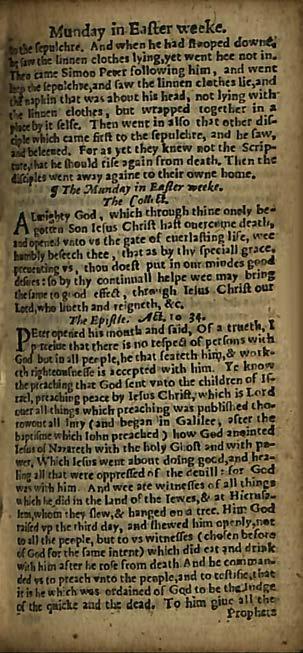 Munday in Easter weeke.
to the sepulchre. And when he had stooped downe,
he saw the linnen clothes lying, yet went hee not in.
Then came Simon Peter following him, and went
into the sepulchre, and saw the linnen clothes lie, and
the napkin that was about his head, not lying with
the linnen clothes, but wrapped together in a
place by it selfe. Then went in also that other dis-
ciple which came first to the sepulchre, and he saw,
and beleeved. For as yet they knew not the Scrip-
ture, that he should rise again from death. Then the
disciples went away againe to their owne home.
¶ The Munday in Easter weeke.
The Collect.
Almighty God, which through thine onely be-
gotten Son Iesus Christ hast overcome death,
and opened vnto vs the gate of euerlasting life, wee
humbly beseech thee, that as by thy speciall grace,
preuenting vs, thou doest put in our mindes good
desires: so by thy continuall helpe wee may bring
the same to good effect, through Iesus Christ our
Lord, who liueth and reigneth, &c.
The Epistle. Act. 10 34.
PEter opened his mouth and said, Of a trueth, I
perceiue that there is no respect of persons with
God but in all people, he that feareth him, & work-
eth righteousnesse is accepted with him. Ye know
the preaching that God sent vnto the children of Is-
rael, preaching peace by Iesus Christ, which is Lord
ouer all things which preaching was published tho-
rowout all Iury (and began in Galilee, after the
baptisme which Iohn preached) how God anointed
Iesus of Nazareth with the holy Ghost and with po-
wer, Which Iesus went about doing good, and hea-
ling all that were oppressed of the deuill: for God
was with him. And wee are witnesses of all things
which he did in the Land of the Iewes, & at Hierusa-
lem, whom they slew, & hanged on a tree. Him God
raised vp the third day, and shewed him openly, not
to all the people, but to vs witnesses (chosen before
of God for the same intent) which did eat and drink
with him after he rose from death And he comman-
ded vs to preach vnto the people, and to testifie, that
it is he which was ordained of God to be the Iudge
of the quicke and the dead. To him giue all the
Prophets